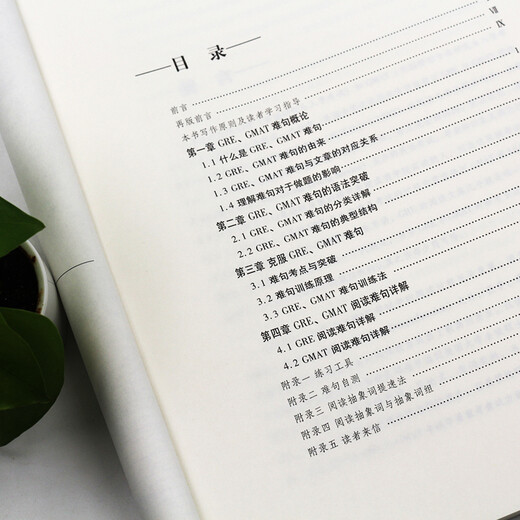 目 录
前言
再版前言 Ⅶ
本书写作原则及读者学习指导 Ⅸ
第一章 GRE、GMAT 难句概论
1.1 什么是 GRE、GMAT 难句
1.2 GRE、GMAT 难句的由来
1.3 GRE、GMAT 难句与文章的对应关系
1.4 理解难句对于做题的影响
第二章 GRE、GMAT 难句的语法突破
2.1 GRE、GMAT 难句的分类详解
2.2 GRE、GMAT 难句的典型结构
第三章 克服 GRE、GMAT 难句
3.1 难句考点与突破
3.2 难句训练原理
3.3 GRE、GMAT 难句训练法
第四章 GRE、GMAT 阅读难句详解
4.1 GRE 阅读难句详解
4.2 GMAT 阅读难句详解
附录一 练习工具
附录二 难句自测
附录三 阅读抽象词提速法
附录四 阅读抽象词与抽象词组
附录五 读者来信